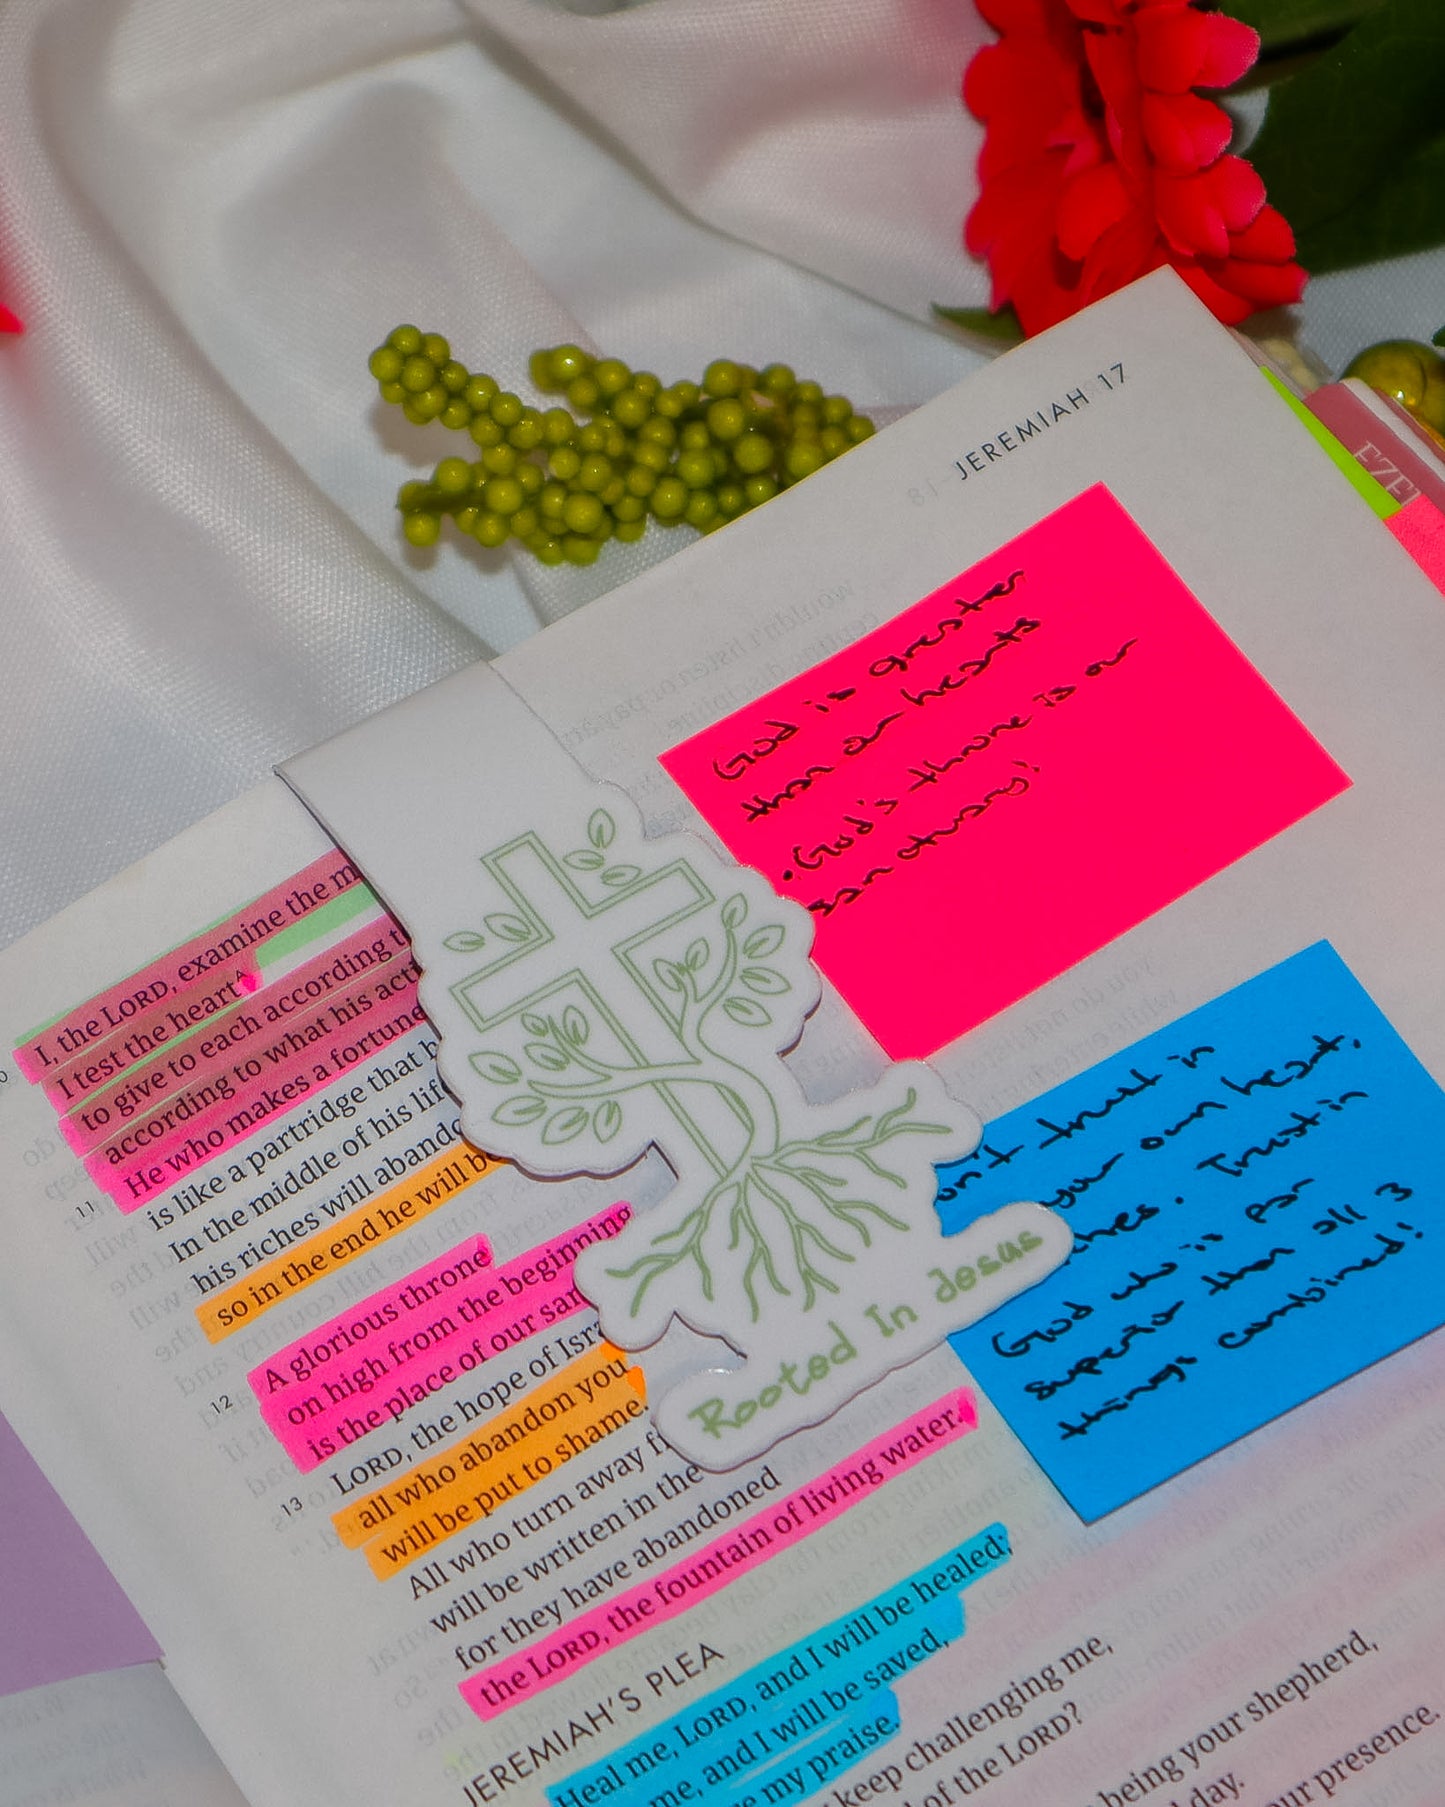 JEREMIAH 17
EZE
God is greater
than our hearts
• God's throne is our
sanctuary!
I, the LORD, examine the m
I test the heartᴬ
to give to each according t
according to what his acti
11 He who makes a fortune
is like a partridge that h
In the middle of his life
his riches will abando
so in the end he will be
12 A glorious throne
on high from the beginning
is the place of our san
13 LORD, the hope of Isra
all who abandon you
will be put to shame.
All who turn away f
will be written in the
for they have abandoned
the LORD, the fountain of living water.
Rooted In Jesus
on't trust in
your own heart,
ches. Trust in
God who is far
superior than all 3
things combined!
JEREMIAH'S PLEA
Heal me, LORD, and I will be healed;
me, and I will be saved,
re my praise.
keep challenging me,
d of the LORD?
being your shepherd,
day.
our presence.